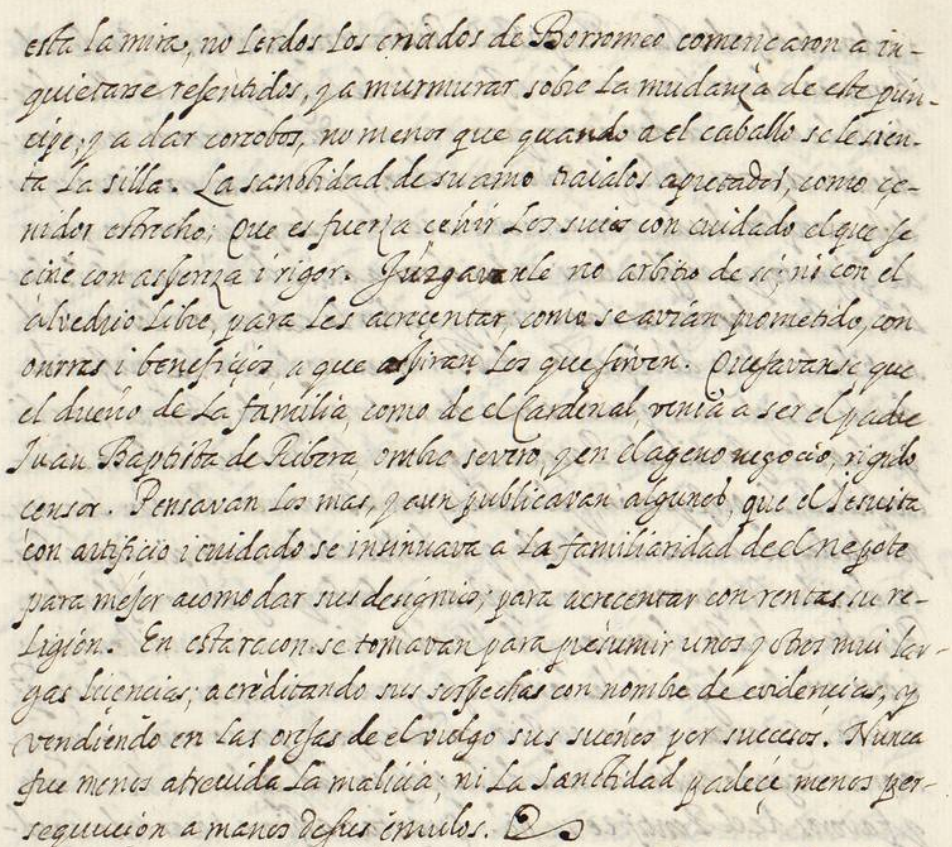 esta la mira, no lerdos los criados de Borromeo començaron a in-
quietarse resentidos, y a murmurar sobre la mudança de este prin-
cipe; y a dar corcobos, no menor que quando a el caballo se le sien-
ta la silla. La sanctidad de su amo traialos apretados, como çe-
nidor estrecho; Que es fuerza ceñir los suios con cuidado el que se
ciñe con aspereza i rigor. Juzgavanle no arbitro de si; ni con el
alvedrio libre, para les acreçentar, como se avian prometido, con
onrras i benefiçios, a que aspiran los que sirven. Quejavanse que
el dueño de la familia, como de el Cardenal, venia a ser el padre
Juan Baptista de Ribera, ombre severo, y en el ageno negocio, rigido
censor. Pensavan los mas, y aun publicavan algunos, que el Jesuita
con artificio i cuidado se insinuava a la familiaridad de el nepote
para mejor acomodar sus designios; para acrecentar con rentas su re-
ligion. En esta racon se tomavan para presumir unos y otros mui lar-
gas liçencias; acreditando sus sospechas con nombre de evidencias, y
vendiendo en las orejas de el vulgo sus sueños por sucesos. Nunca
fue menos atrevida la malicia; ni la sanctidad padeçe menos per-
secucion a manos de sus emulos.